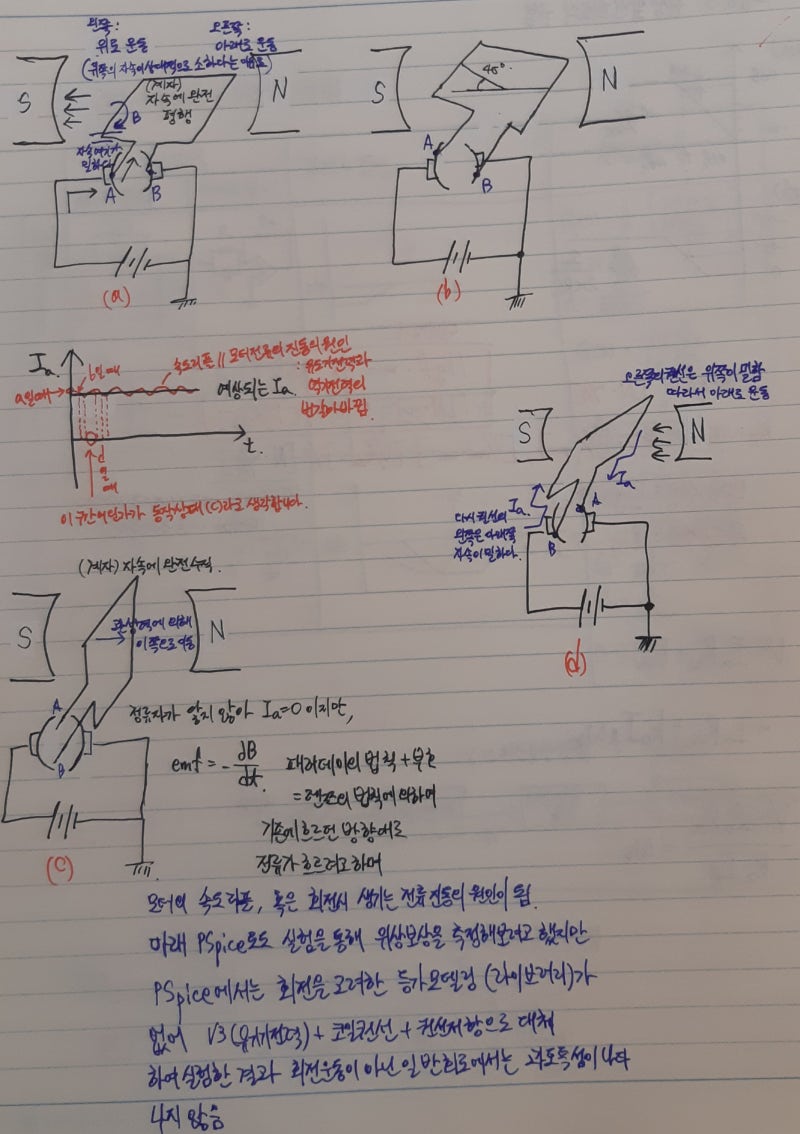 왼쪽 :
위로 운동
오른쪽 :
아래로 운동
(위쪽의 자속이 상대적으로 소하다는 이유)
S
N
(계자)
자속에 완전
평행
B
자속 여기가
밀하다
A
B
(a)
S
N
45°
A
B
(b)
Ia
a일때
b일때
속도리플 // 모터전류의 진동의 원인
: 유도기전력과
역기전력의
번갈아 바뀜
예상되는 Ia
t
d
일
때
이 구간 어딘가가 동작상태 (c)라고 생각합니다.
오른쪽의 권선은 위쪽이 밀함
따라서 아래로 운동
S
N
Ia
Ia
A
B
다시 권선의
왼쪽은 아래쪽
자속이 밀하다.
(d)
(계자) 자속에 완전수직
S
N
관성력에 의해
이쪽으로 이동
A
B
(c)
정류자가 닿지 않아 Ia=0 이지만,
emf = - dB/dt 패러데이의 법칙 + 부호
= 렌츠의 법칙에 의하여
기존에 흐르던 방향대로
전류가 흐르려고 하며
모터의 속도리플, 혹은 회전시 생기는 전류 진동의 원인이 됨.
아래 PSpice로도 실험을 통해 위상보상을 측정해보려고 했지만
PSpice에서는 회전을 고려한 등가모델링 (라이브러리)가
없어 V3(유기전력) + 코일권선 + 권선저항으로 대체
하여 실험한 결과 회전운동이 아닌 일반회로에서는 과도특성이 나타
나지 않음